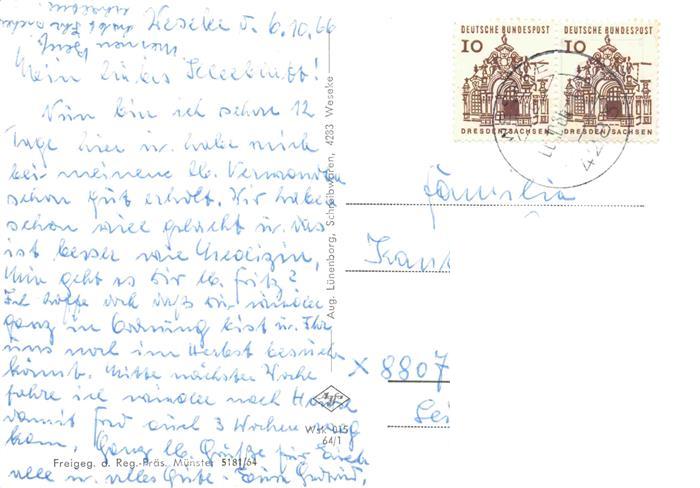 Weseke d. 6.10.66
Mein liebes Kleeblatt!
Nun bin ich schon 12
Tage hier u. habe mich
bei meinen lb. Verwandten
schon gut erholt. Wir haben
schon viel gelacht u. das
ist besser wie Medizin,
Wie geht es Dir lb. Fritz?
Ich hoffe doch daß Du wieder
ganz in Ordnung bist u. Ihr
uns noch im Herbst besuchen
könnt. Mitte nächster Woche
fahre ich wieder nach Hause
damit Fred auch 3 Wochen weg
kann. Ganz lb. Grüße für Euch
alle u. alles Gute. Eure
Freigeg. d. Reg.-Präs. Münster 5181/64
Aug. Lünenborg, Schreibwaren, 4283 Weseke
Agfa
WsK 015
64/1
DEUTSCHE BUNDESPOST
10
DRESDEN/SACHSEN
DEUTSCHE BUNDESPOST
10
DRESDEN/SACHSEN
Familie
X 8807